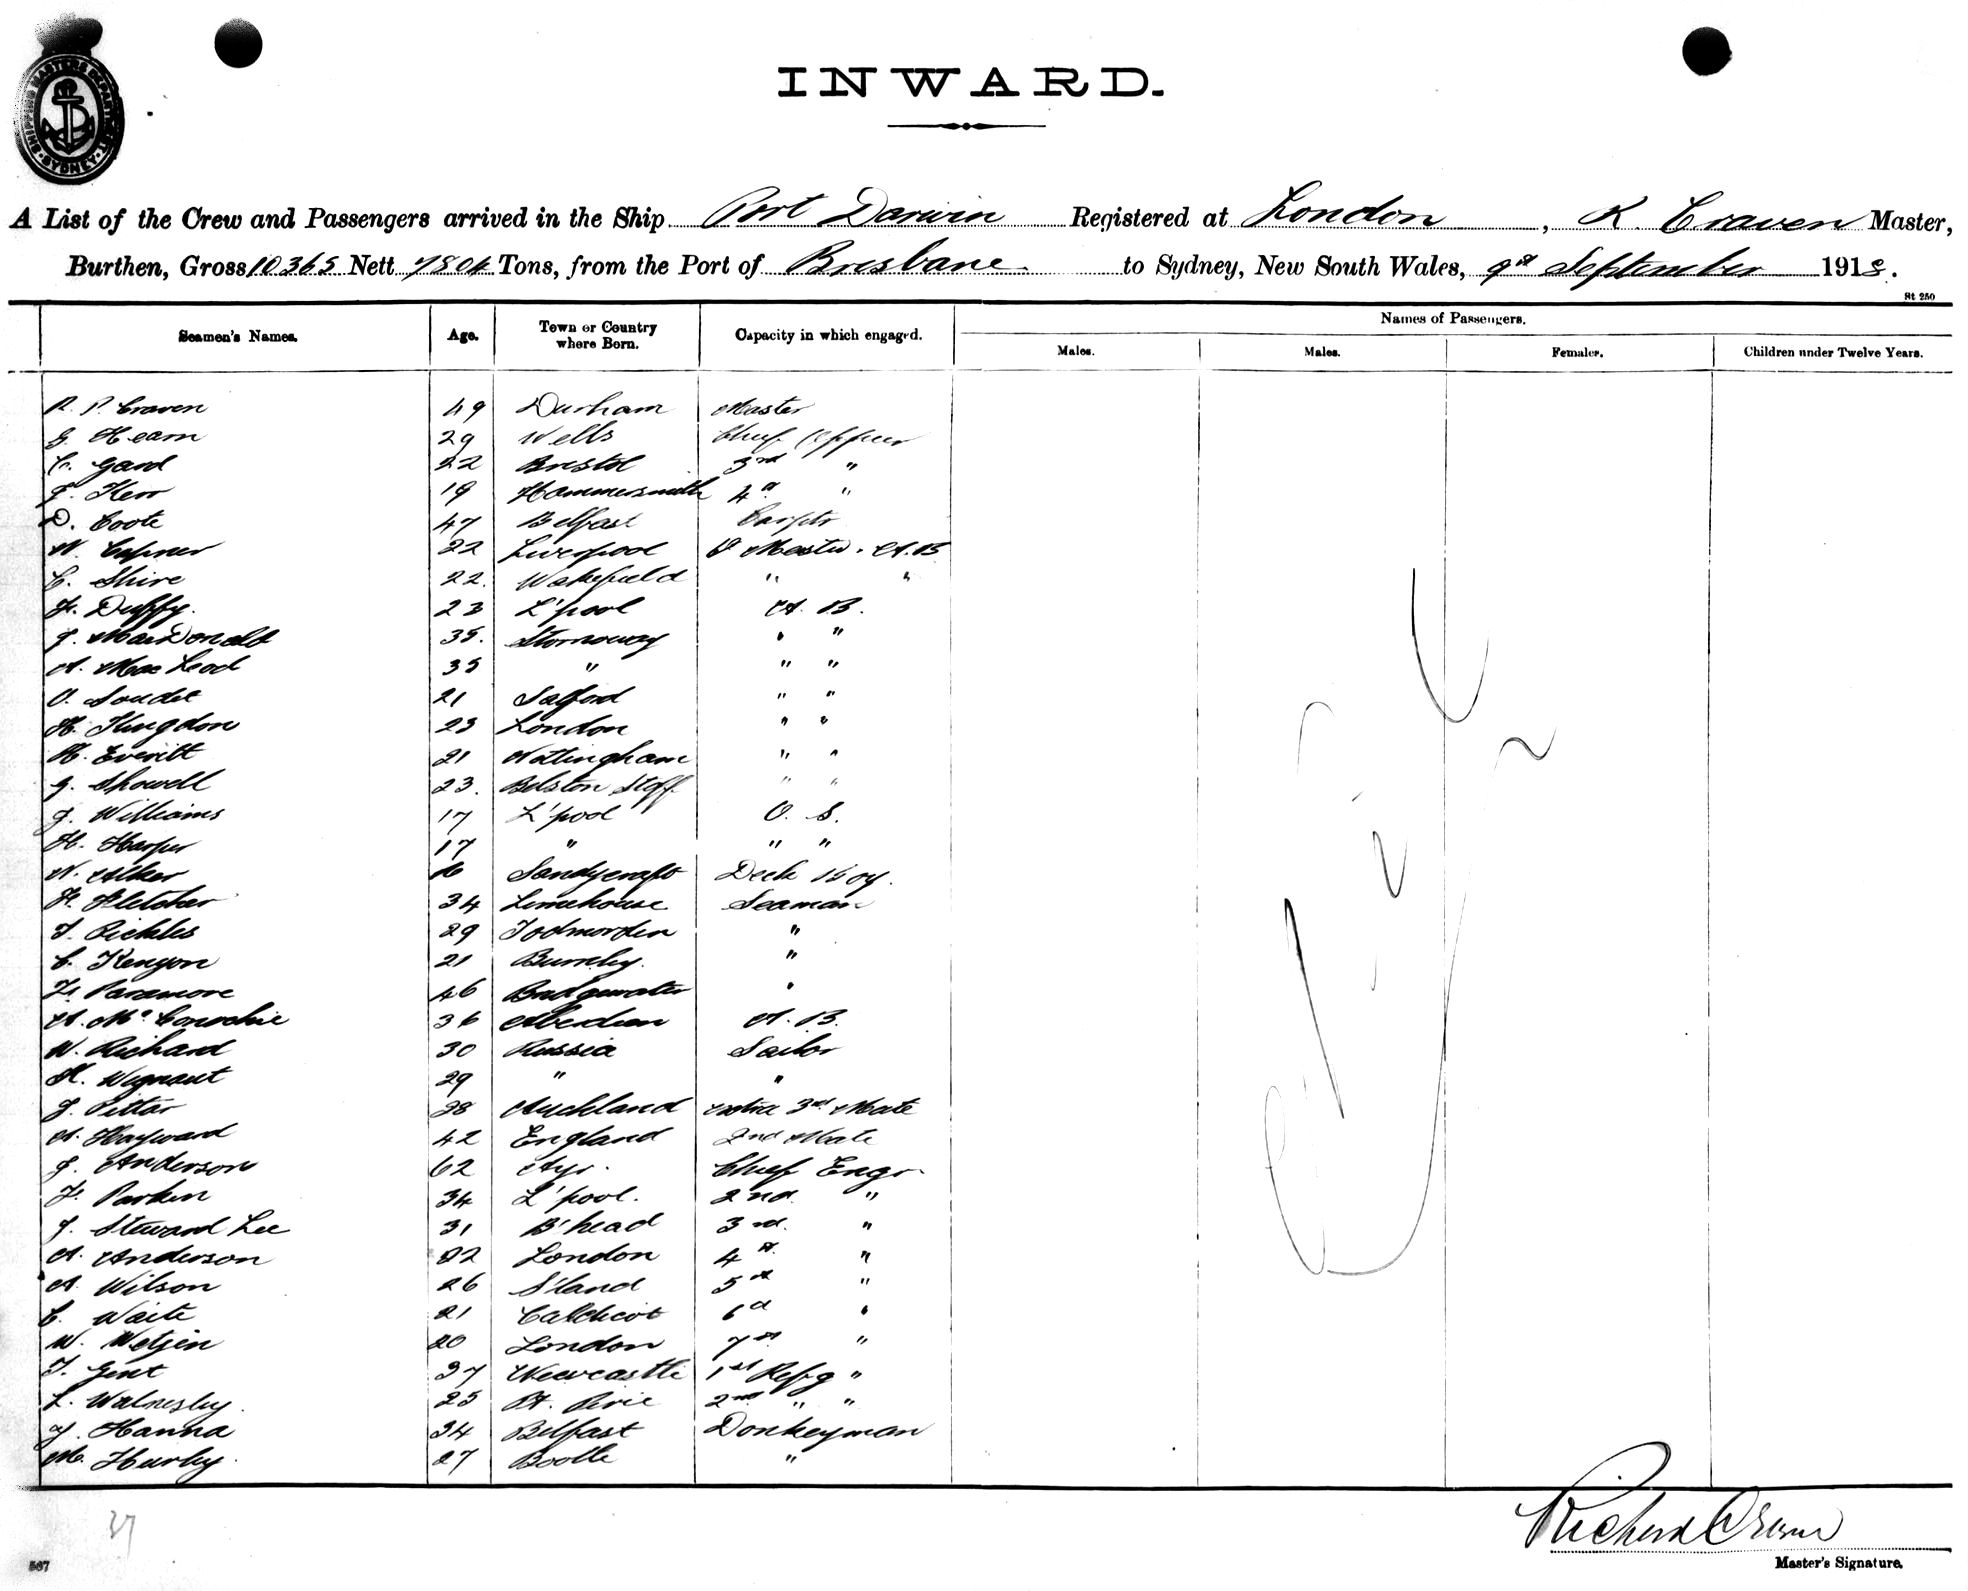 SHIPPING MASTERS DEPARTMENT
SYDNEY
INWARD.
A List of the Crew and Passengers arrived in the Ship Port Darwin Registered at London, R. Craven Master,
Burthen, Gross 10365 Nett 7804 Tons, from the Port of Brisbane to Sydney, New South Wales, 9th September 1918.
St 250
Seamen's Names. Age. Town or Country where Born. Capacity in which engaged. Names of Passengers.
Males. Males. Females. Children under Twelve Years.
R. P. Craven 49 Durham Master
G. Hearn 29 Wells Chief Officer
C. Gard 22 Bristol 3rd "
J. Kerr 19 Hammersmith 4th "
D. Coote 47 Belfast Carptr
W. Capner 22 Liverpool Q Master. A.B
C. Shire 22. Wakefield " "
F. Duffy. 23 L'pool A. B.
J. MacDonald 35. Stornoway " "
A. MacLeod 35 " " "
O. Soudet 21 Salford " "
H. Kingdon 23 London " "
H. Everitt 21 Nottingham " "
G. Showell 23. Bilston Staff " "
J. Williams 17 L'pool O. S.
H. Harper 17 " " "
W. Alker 16 Sandycroft Deck Boy.
F. Fletcher 34 Limehouse Seaman
T. Pickles 29 Todmorden "
C. Kenyon 21 Burnley. "
F. Paramore 46 Bridgewater "
A. McConochie 36 Aberdeen A. B.
W. Richard 30 Russia Sailor
K. Wignaut 29 " "
J. Pittar 38 Auckland extra 3rd Mate
A. Hayward 42 England 2nd Mate
J. Anderson 62 Ayr. Chief Engr
F. Parkin 34 L'pool. 2nd. "
J. Steward Lee 31 B'head 3rd. "
A. Anderson 22 London 4th "
A. Wilson 26 S'land 5th "
C. Waite 21 Caldicot 6th "
W. Wetjen 20 London 7th "
T. Gent 37 Newcastle 1st Refg "
L. Walmesley. 25 Pt. Pirie 2nd " "
J. Hanna 34 Belfast Donkeyman
M. Hurley. 27 Bootle "
37
Richard Craven
Master's Signature.
567